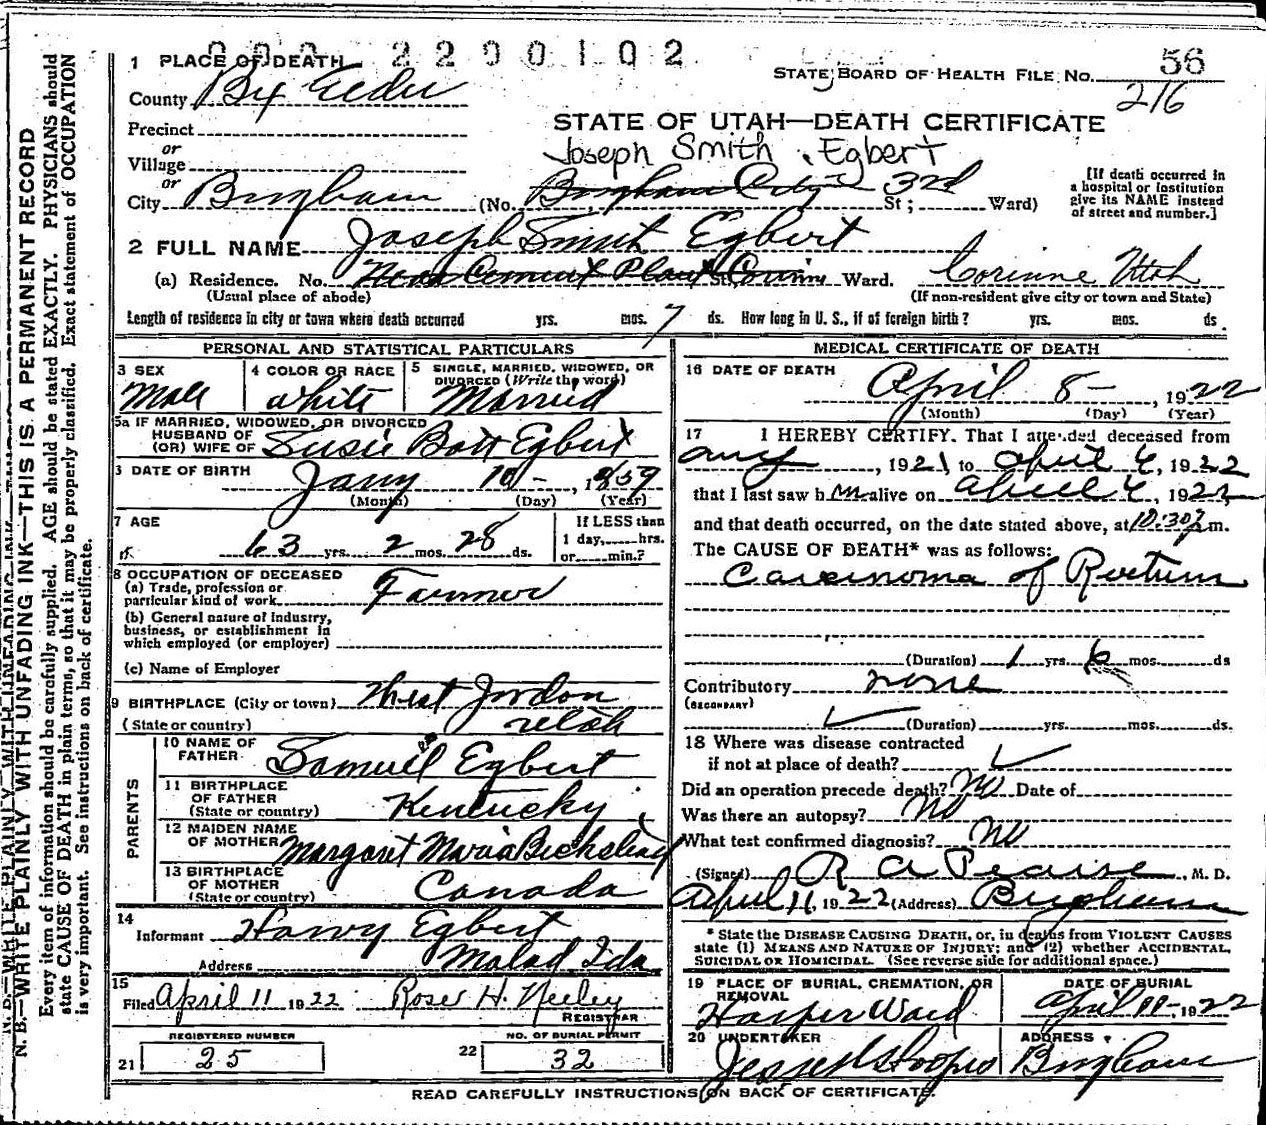 000 2200102
1 PLACE OF DEATH
STATE BOARD OF HEALTH FILE NO. 56
216
County Box Elder
Precinct
or
Village
or
City Brigham (No. Brigham City 3rd St; Ward)
STATE OF UTAH—DEATH CERTIFICATE
Joseph Smith Egbert
[If death occurred in
a hospital or institution
give its NAME instead
of street and number.]
2 FULL NAME Joseph Smith Egbert
(a) Residence. No. Near Cement Plant St, Ward. Corinne Utah
(Usual place of abode) (If non-resident give city or town and State)
Length of residence in city or town where death occurred yrs. mos. 7 ds. How long in U. S., if of foreign birth? yrs. mos. ds.
PERSONAL AND STATISTICAL PARTICULARS
3 SEX
Male
4 COLOR OR RACE
white
5 SINGLE, MARRIED, WIDOWED, OR
DIVORCED (Write the word)
Married
5a IF MARRIED, WIDOWED, OR DIVORCED
HUSBAND OF
(OR) WIFE OF Susie Bott Egbert
3 DATE OF BIRTH
Jany 10- , 1859
(Month) (Day) (Year)
7 AGE
63 yrs. 2 mos. 28 ds.
If LESS than
1 day, hrs.
or min.?
8 OCCUPATION OF DECEASED
(a) Trade, profession or
particular kind of work Farmer
(b) General nature of Industry,
business, or establishment in
which employed (or employer)
(c) Name of Employer
9 BIRTHPLACE (City or town) West Jordon
(State or country) Utah
PARENTS
10 NAME OF
FATHER Samuel Egbert
11 BIRTHPLACE
OF FATHER
(State or country) Kentucky
12 MAIDEN NAME
OF MOTHER Margaret Maria Beckstead
13 BIRTHPLACE
OF MOTHER
(State or country) Canada
14
Informant Harvy Egbert
Address Malad Ida
15
Filed April 11 1922 Rose H. Neeley
REGISTRAR
REGISTERED NUMBER
21 25
NO. OF BURIAL PERMIT
22 32
MEDICAL CERTIFICATE OF DEATH
16 DATE OF DEATH
April 8- , 1922
(Month) (Day) (Year)
17 I HEREBY CERTIFY. That I attended deceased from
, 1921, to April 6, 1922
that I last saw him alive on April 6, 1922,
and that death occurred, on the date stated above, at 10:30 P m.
The CAUSE OF DEATH* was as follows:
Carcinoma of Rectum
(Duration) 1 yrs. 6 mos. ds
Contributory none
(SECONDARY)
(Duration) yrs. mos. ds.
18 Where was disease contracted
if not at place of death?
Did an operation precede death? No Date of
Was there an autopsy? No
What test confirmed diagnosis? No
(Signed) R A Pearse, M. D.
April 11, 1922 (Address) Brigham
* State the DISEASE CAUSING DEATH, or, in deaths from VIOLENT CAUSES
state (1) MEANS AND NATURE OF INJURY; and (2) whether ACCIDENTAL,
SUICIDAL OR HOMICIDAL. (See reverse side for additional space.)
19 PLACE OF BURIAL, CREMATION, OR
REMOVAL
Harper Ward
DATE OF BURIAL
April 11-, 1922
20 UNDERTAKER
ADDRESS
Brigham
READ CAREFULLY INSTRUCTIONS ON BACK OF CERTIFICATE.
N. B.—WRITE PLAINLY WITH UNFADING INK—THIS IS A PERMANENT RECORD
Every item of information should be carefully supplied. AGE should be stated EXACTLY. PHYSICIANS should
state CAUSE OF DEATH in plain terms, so that it may be properly classified. Exact statement of OCCUPATION
is very important. See instructions on back of certificate.